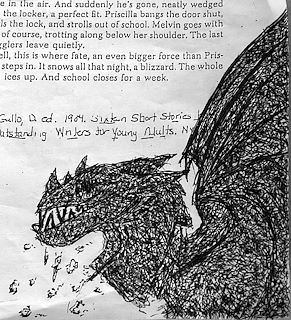 e in the air. And suddenly he's gone, neatly wedged
the locker, a perfect fit. Priscilla bangs the door shut,
ls the lock, and strolls out of school. Melvin goes with
of course, trotting along below her shoulder. The last
gglers leave quietly.
ell, this is where fate, an even bigger force than Pris-
steps in. It snows all that night, a blizzard. The whole
ices up. And school closes for a week.
Gallo, D. ed. 1984. Sixteen Short Stories
Outstanding Writers for Young Adults. NY